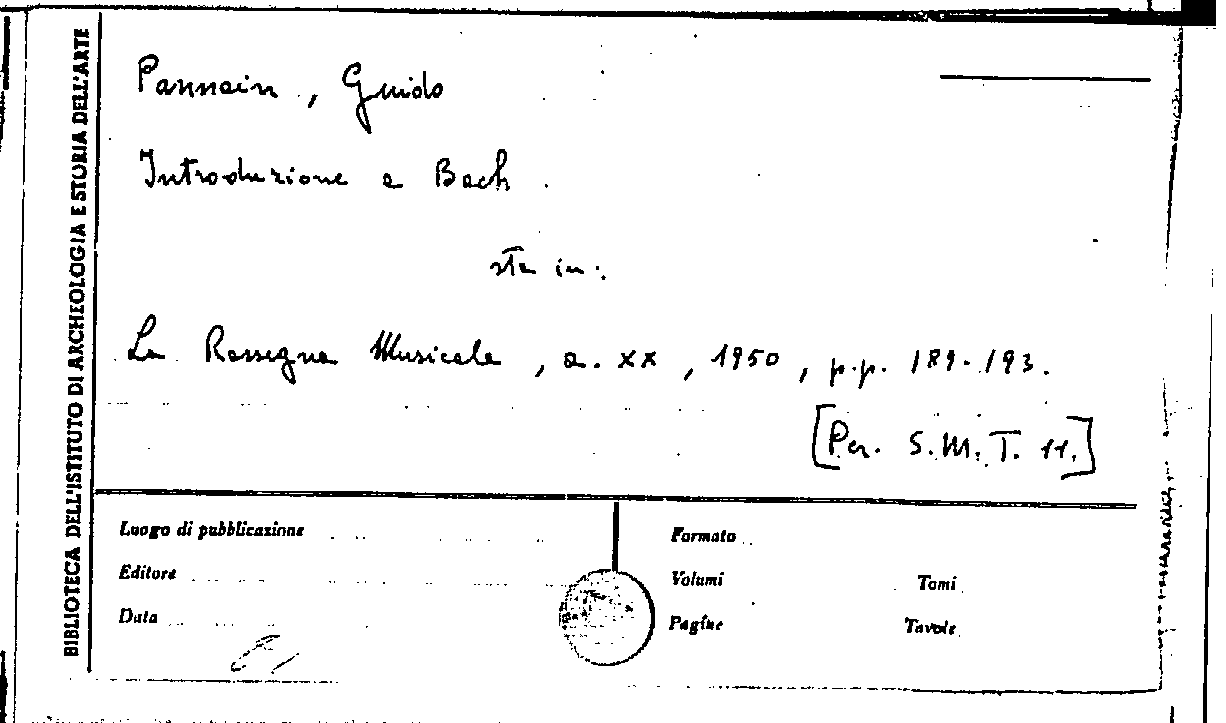 BIBLIOTECA DELL'ISTITUTO DI ARCHEOLOGIA E STORIA DELL'ARTE
Pannain, Guido
Introduzione a Bach.
sta in:
La Rassegna Musicale, a. XX, 1950, p.p. 189-193.
[Per. S.M.T. 11.]
Luogo di pubblicazione
Editore
Data
Formato
Volumi Tomi
Pagine Tavole